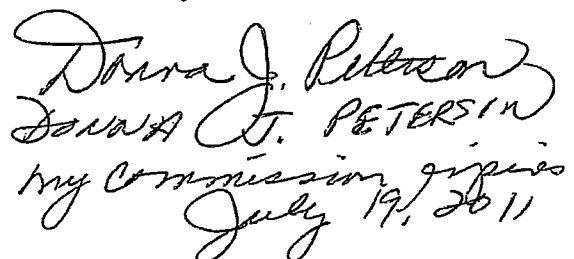 Donna J. Peterson
DONNA J. PETERSON
my commission expires
July 19, 2011